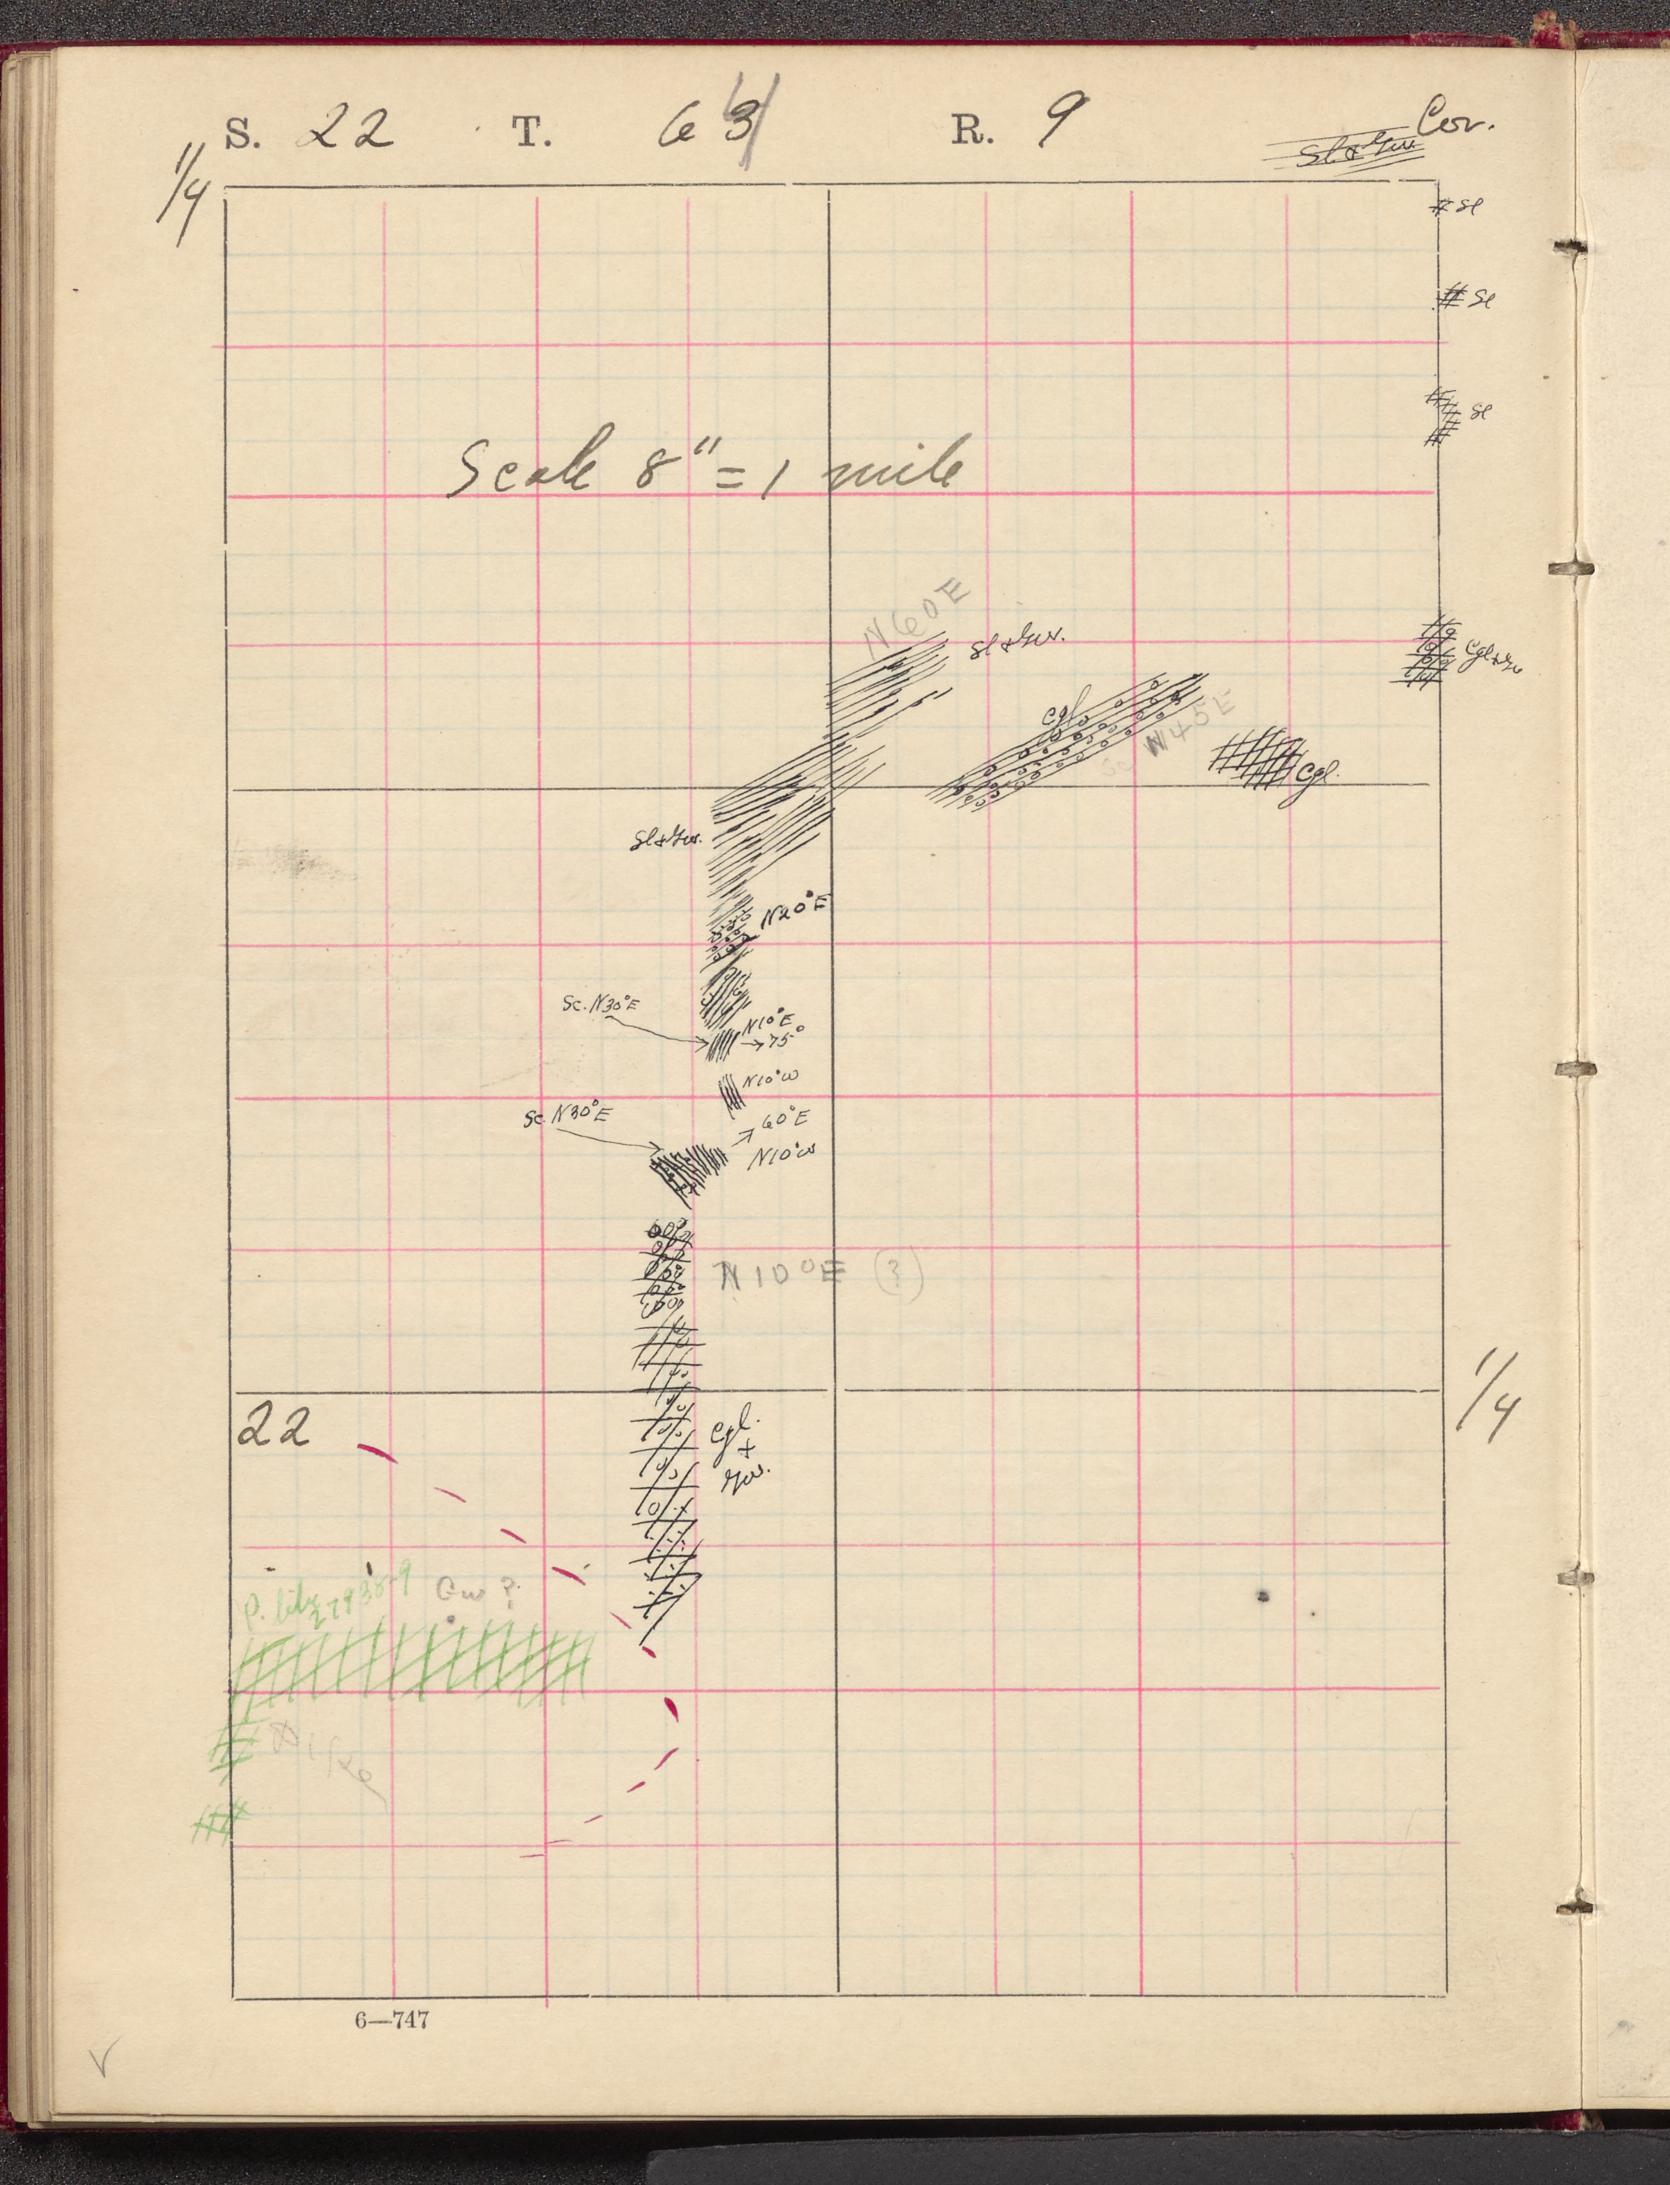 S. 22 T. 64 R. 9 Cor.
Sl & Gw
1/4
Sl
Sl
Scale 8" = 1 mile
Sl
N60E
Sl & Gw.
Cgl & Gw
Cgl
Sc N45E
Cgl.
Sl & Gw.
N20°E
Sc. N30°E
N10°E
→ 75°
N10°W
Sc. N30°E
→ 60°E
N10°W
N10°E (?)
1/4
22
Cgl.
+
Gw.
Gw ?
Dike
6—747